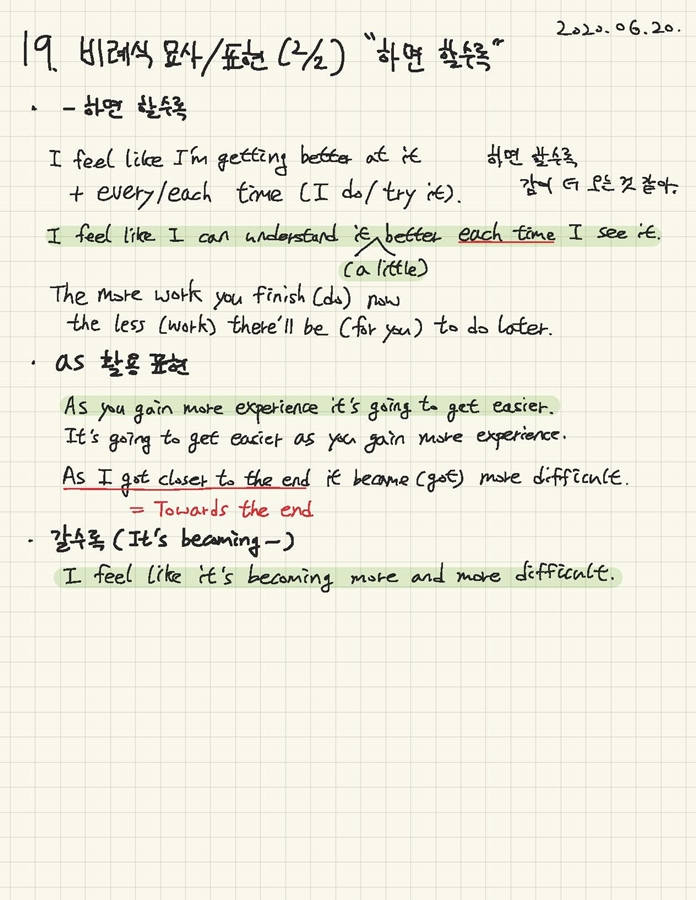 2020.06.20.
19. 비례식 묘사/표현 (2/2) "하면 할수록"
· - 하면 할수록
I feel like I'm getting better at it
하면 할수록
+ every/each time (I do/try it).
감이 더 오는 것 같아.
I feel like I can understand it better each time I see it.
(a little)
The more work you finish (do) now
the less (work) there'll be (for you) to do later.
· as 활용 표현
As you gain more experience it's going to get easier.
It's going to get easier as you gain more experience.
As I got closer to the end it became (got) more difficult.
= Towards the end
· 갈수록 (It's becoming -)
I feel like it's becoming more and more difficult.